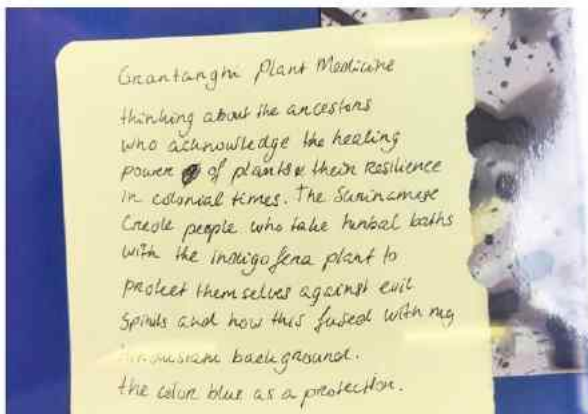 Grantanghi Plant Medicine
thinking about the ancestors
who acknowledge the healing
power of plants & their Resilience
in colonial times. The Surinamese
Creole people who take herbal baths
with the indigofera plant to
protect themselves against evil
spirits and how this fused with my
background.
the color blue as a protection.